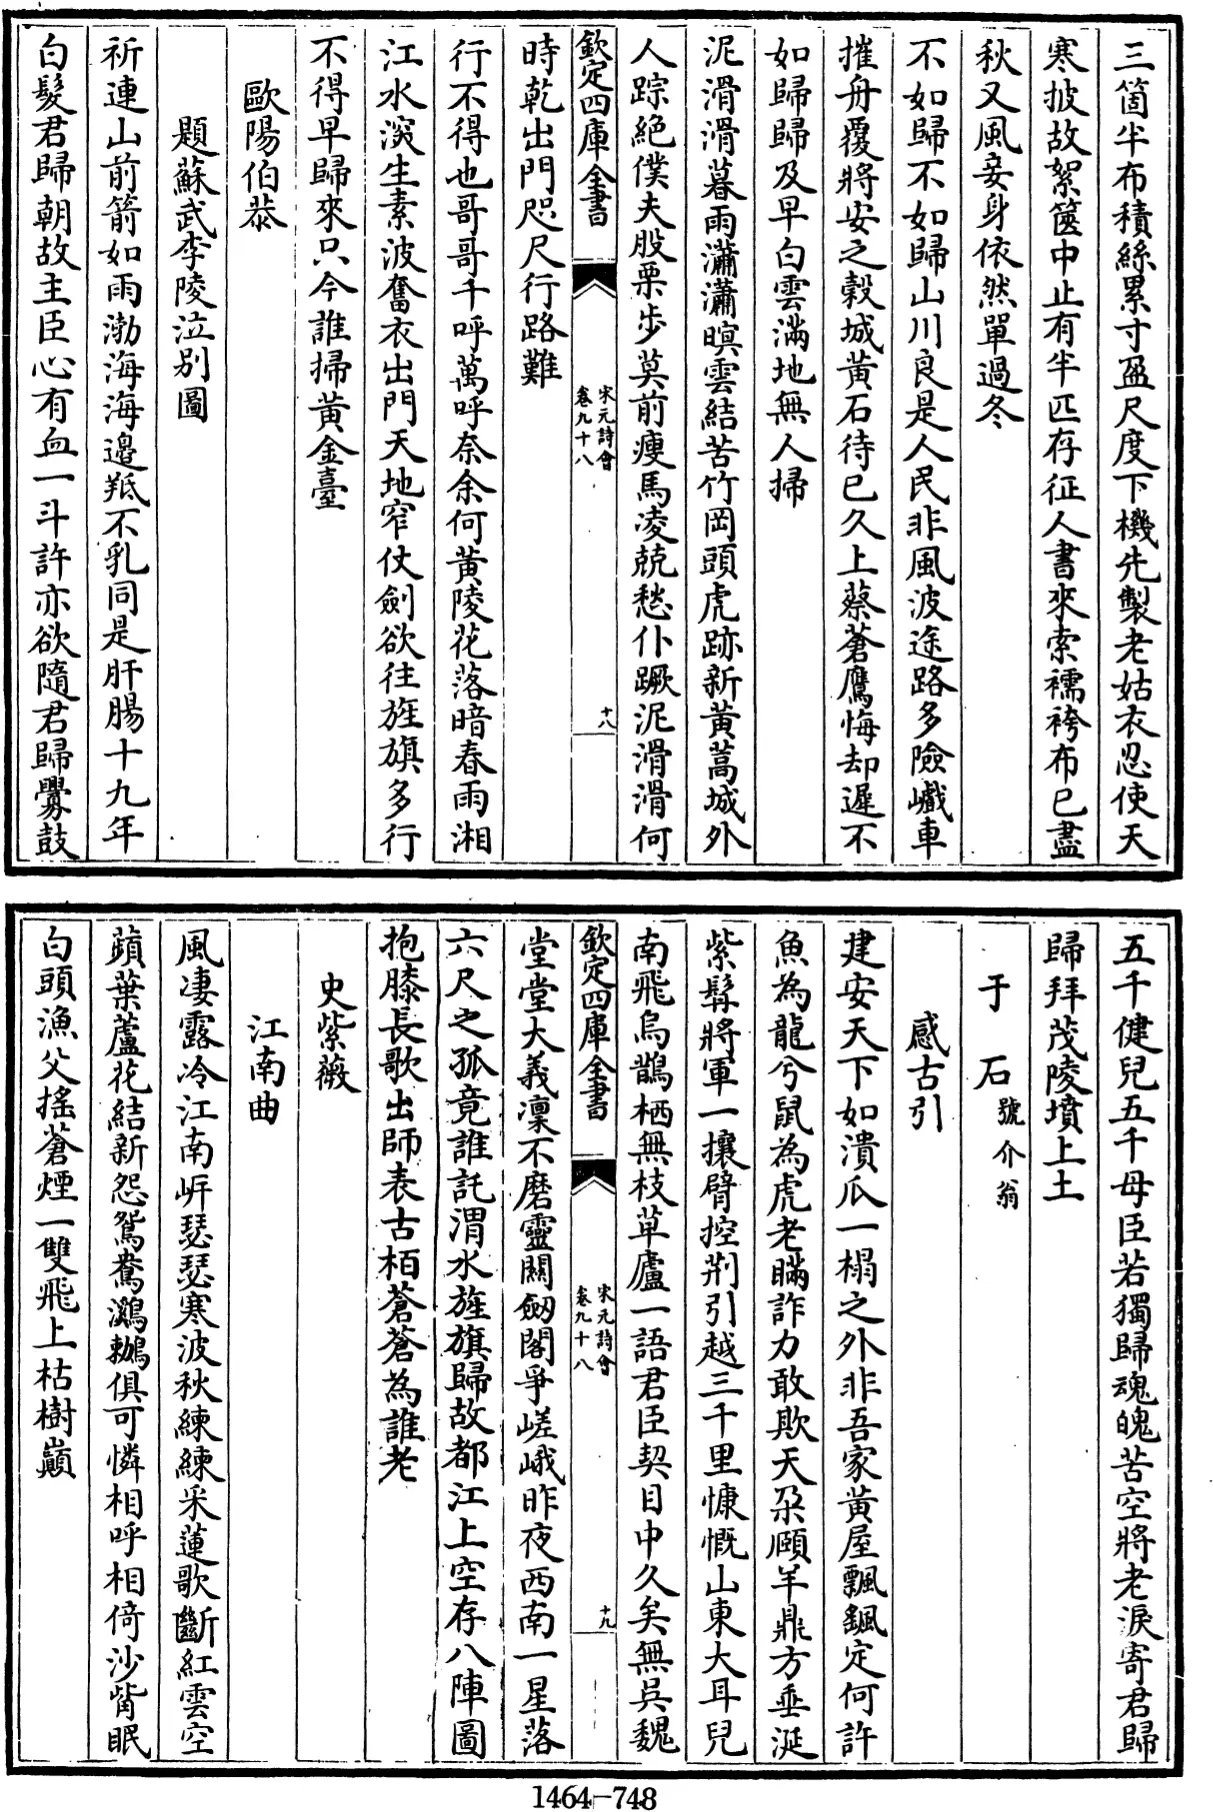 三箇半布積絲累寸盈尺度下機先製老姑衣忍使天
寒披故絮篋中止有半匹存征人書來索襦袴布已盡
秋又風妾身依然單過冬
不如歸不如歸山川良是人民非風波途路多險巇車
摧舟覆將安之穀城黄石待已久上蔡蒼鷹悔却遲不
如歸歸及早白雲滿地無人掃
泥滑滑暮雨瀟瀟暝雲結苦竹岡頭虎跡新黄蒿城外
人踪絶僕夫股栗步莫前瘦馬凌兢愁仆蹶泥滑滑何
欽定四庫全書
宋元詩會
卷九十八
十八
時乾出門咫尺行路難
行不得也哥哥千呼萬呼奈余何黄陵花落暗春雨湘
江水深生素波奮衣出門天地窄仗劍欲往旌旗多行
不得早歸來只今誰掃黄金臺
歐陽伯恭
題蘇武李陵泣别圖
祈連山前箭如雨渤海海邉羝不乳同是肝腸十九年
白髮君歸朝故主臣心有血一斗許亦欲隨君歸釁鼓
五千健兒五千母臣若獨歸魂魄苦空將老淚寄君歸
歸拜茂陵墳上土
于石 號介翁
感古引
建安天下如潰瓜一榻之外非吾家黄屋飄颻定何許
魚為龍兮鼠為虎老瞞詐力敢欺天朶頤羊鼎方垂涎
紫髯將軍一攘臂控荆引越三千里慷慨山東大耳兒
南飛烏鵲栖無枝草廬一語君臣契目中久矣無吳魏
欽定四庫全書
宋元詩會
卷九十八
十九
堂堂大義凜不磨靈關劔閣爭嵯峨昨夜西南一星落
六尺之孤竟誰託渭水旌旗歸故都江上空存八陣圖
抱膝長歌出師表古栢蒼蒼為誰老
史紫薇
江南曲
風凄露冷江南岍瑟瑟寒波秋練練采蓮歌斷紅雲空
蘋葉蘆花結新怨鴛鴦鸂鶒俱可憐相呼相倚沙觜眠
白頭漁父搖蒼煙一雙飛上枯樹巔
1464-748